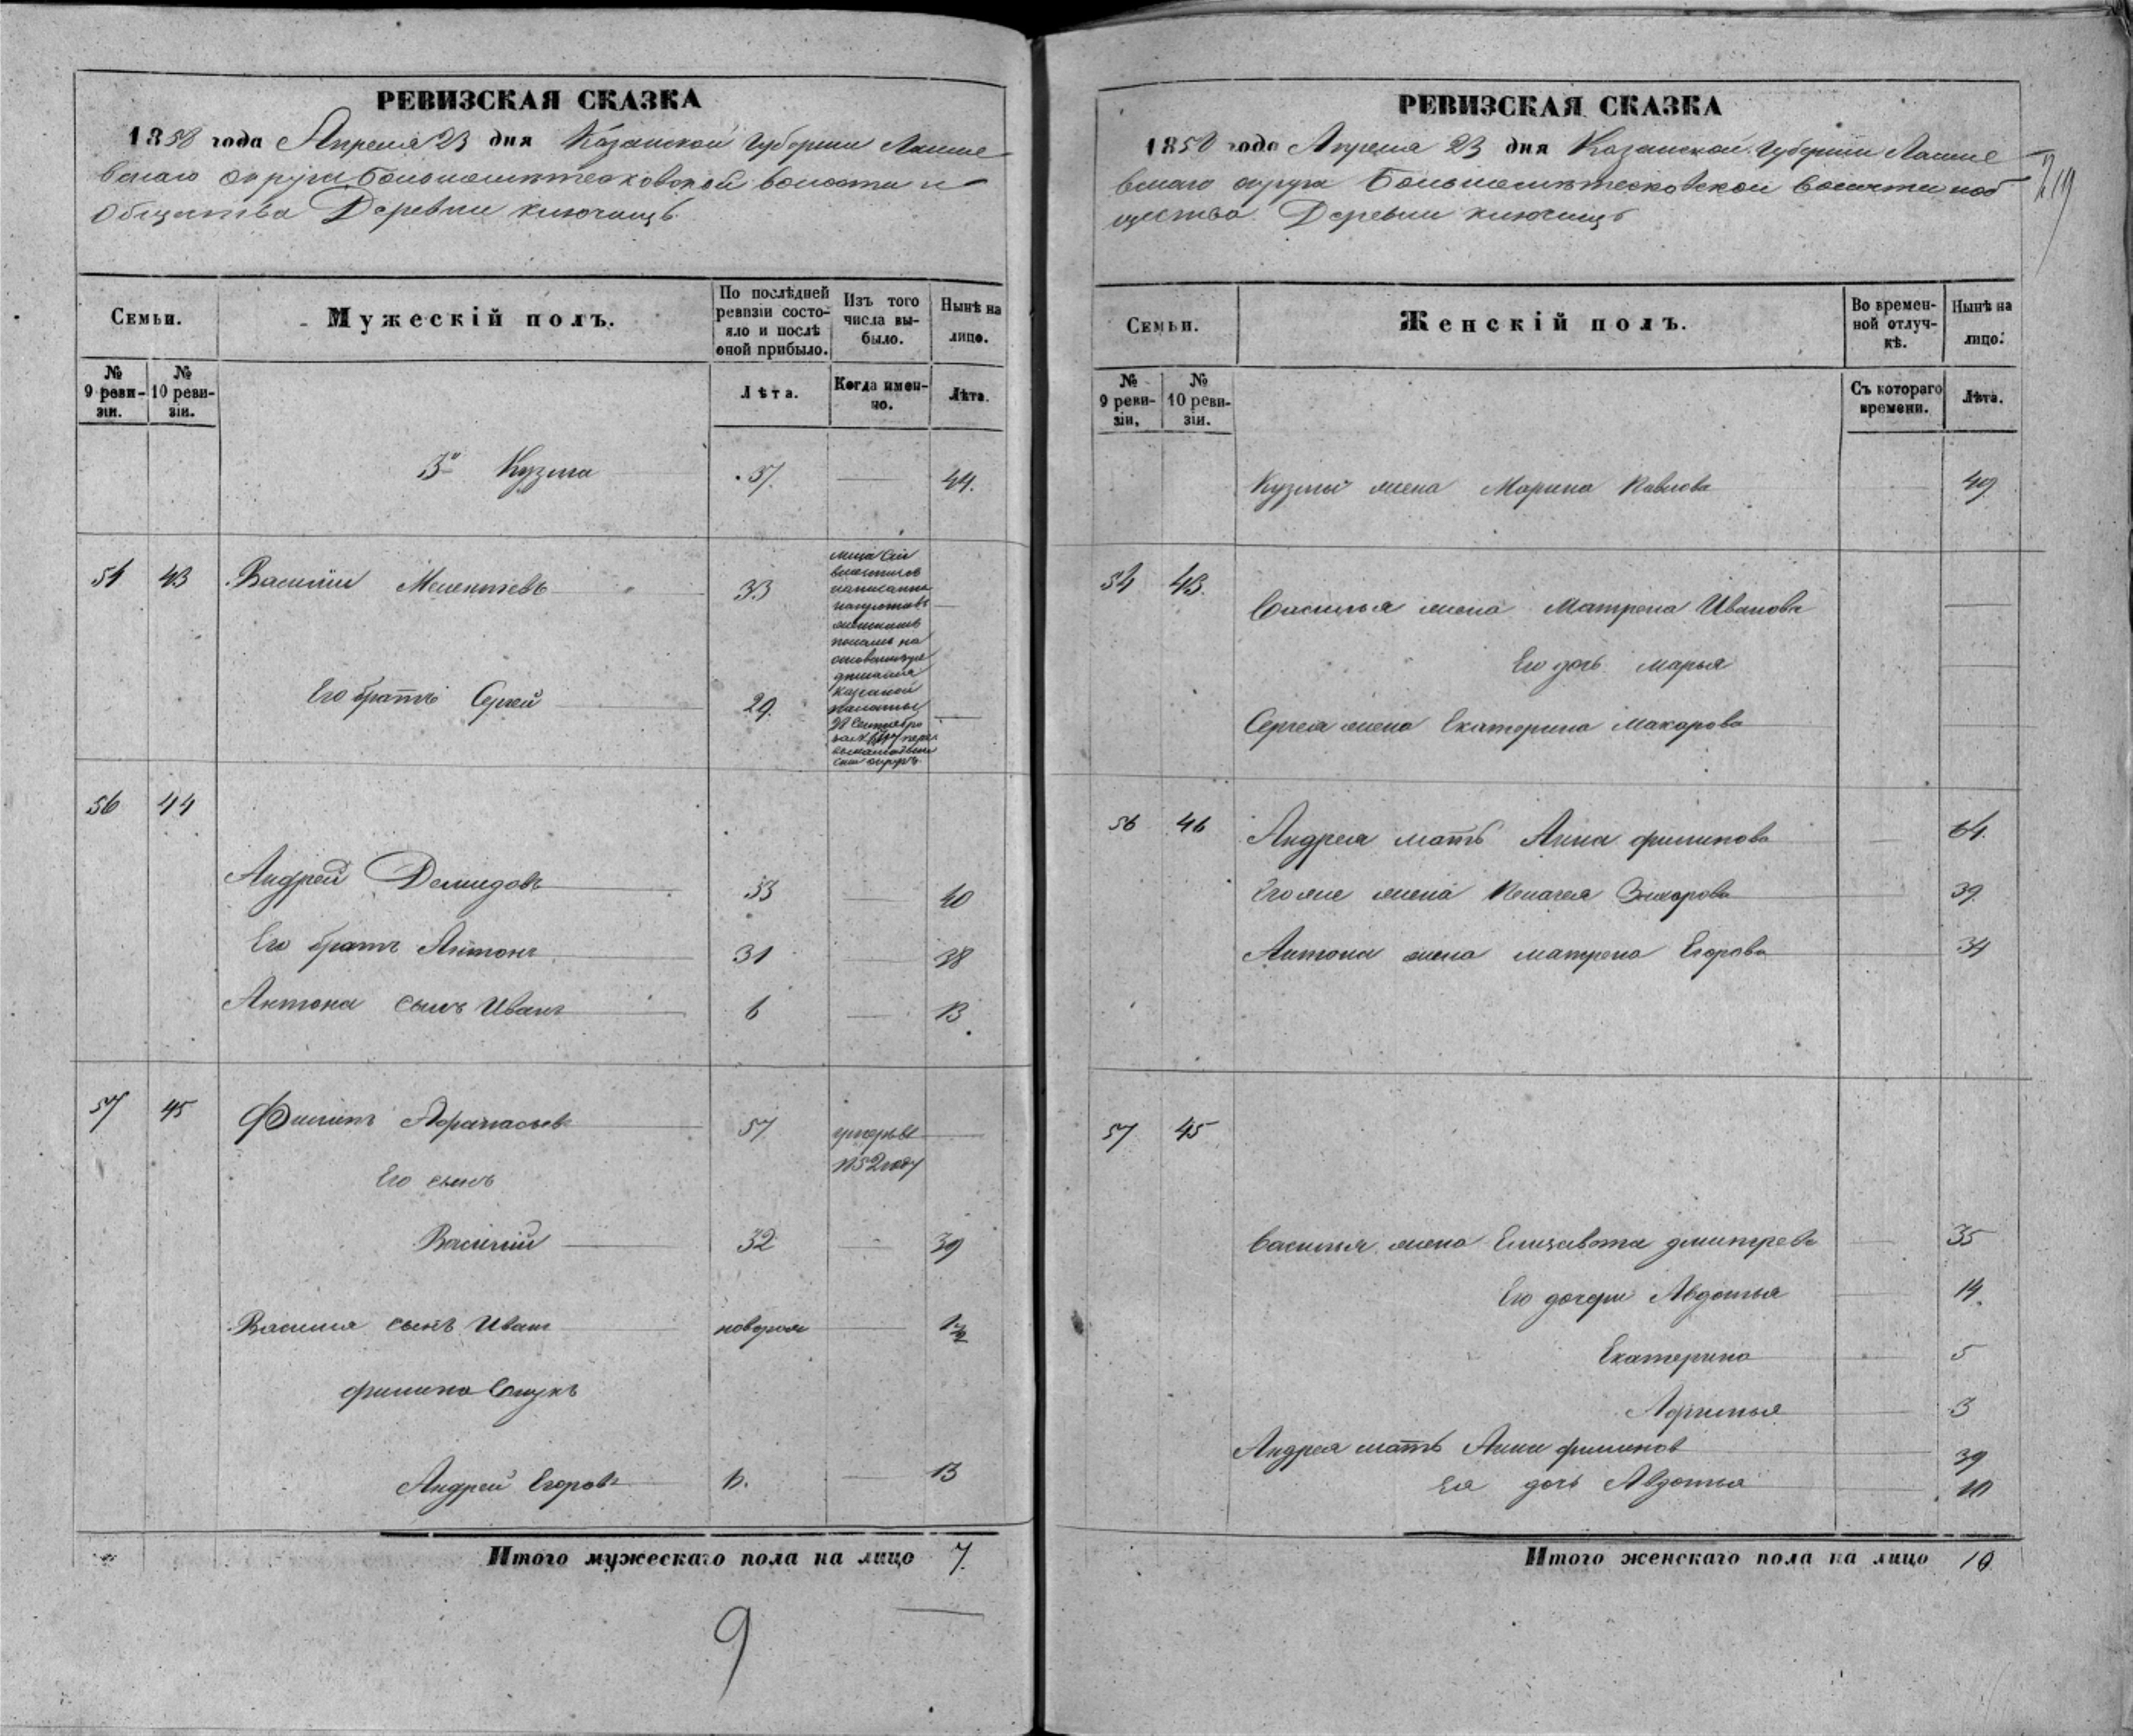 РЕВИЗСКАЯ СКАЗКА
1858 года Апреля 23 дня Казанской Губернии Лаише
вскаго округа волости и
общества Деревни Ключищъ
Семьи.
Мужескій полъ.
По послѣдней ревизіи состояло и послѣ оной прибыло.
Изъ того числа выбыло.
Нынѣ на лицо.
№ 9 ревизіи.
№ 10 ревизіи.
Лѣта.
Когда именно.
Лѣта.
3й Кузма 37. 44.
54 43 Василий Мелентьевъ 33
Его братъ Сергей 29.
казенной
палаты
28 Сентября
56 44
Андрей Демидовъ 33 40
Его братъ Антонъ 31 38
Антона сынъ Иванъ 6 13
57 45 Филипъ Афанасьевъ 57 умеръ въ
1852 году
Его сынъ
Василий 32 39
Василья сынъ Иванъ новорож
Филипа внукъ
Андрей Егоровъ 6. 13
Итого мужескаго пола на лицо 7.
9
РЕВИЗСКАЯ СКАЗКА
1858 года Апреля 23 дня Казанской Губернии Лаише
вскаго округа волости и об
щества Деревни Ключищъ
Семьи.
Женскій полъ.
Во временной отлучкѣ.
Нынѣ на лицо.
№ 9 ревизіи,
№ 10 ревизіи.
Съ котораго времени.
Лѣта.
Кузмы жена Марина Павлова 49
54 43.
Василья жена Матрена Иванова
Его дочь Марья
Сергея жена Екатерина Макарова
56 46 Андрея мать Анна Филипова 64.
Его же жена Пелагея Захарова 39.
Антона жена Матрена Егорова 34
57 45
Василья жена Елизавета Дмитрева 35
Его дочери Авдотья 14.
Екатерина 5
3
Андрея мать Анна Филипов 39
Ея дочь Авдотья
Итого женскаго пола на лицо 10